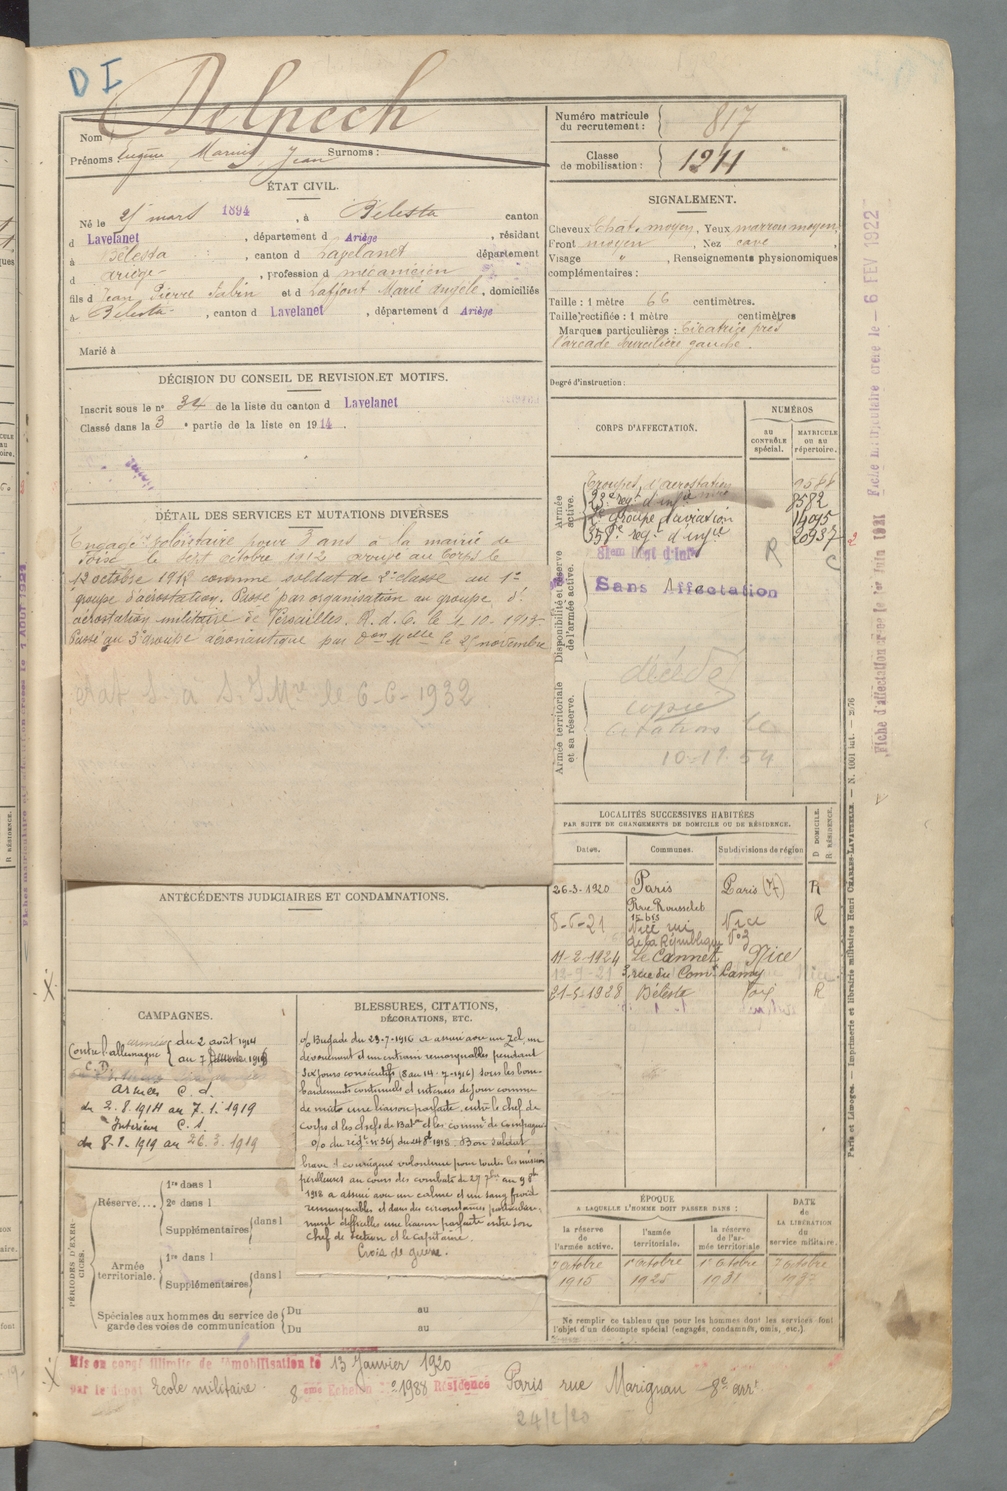 D I
Delpech
Nom
Prénoms : Eugène, Marius, Jean Surnoms :
Numéro matricule du recrutement : 817
Classe de mobilisation : 1911
ÉTAT CIVIL.
Né le 25 mars 1894, à Bélesta canton
d Lavelanet, département d Ariège, résidant
à Bélesta, canton d Lavelanet département
d Ariège, profession d mécanicien
fils d Jean Pierre Fabin et d Laffont Marie Angèle, domiciliés
à Bélesta, canton d Lavelanet, département d Ariège
Marié à
SIGNALEMENT.
Cheveux chât. moyen, Yeux marron moyen,
Front moyen, Nez cave,
Visage ", Renseignements physionomiques
complémentaires :
Taille : 1 mètre 66 centimètres.
Taille rectifiée : 1 mètre centimètres
Marques particulières : Cicatrice près
l'arcade sourcilière gauche.
Degré d'instruction :
DÉCISION DU CONSEIL DE REVISION ET MOTIFS.
Inscrit sous le n° 34 de la liste du canton d Lavelanet
Classé dans la 3e partie de la liste en 1914.
DÉTAIL DES SERVICES ET MUTATIONS DIVERSES
Engagé volontaire pour 3 ans à la mairie de
Foix le sept octobre 1912 arrivé au Corps le
12 octobre 1912 comme soldat de 2e classe au 1er
groupe d'aérostation. Passé par organisation au groupe d'
aérostation militaire de Versailles. R. d. C. le 1. 10. 1913.
Passé au 3e groupe aéronautique par Don Melle le 21 novembre
etat S. a S. I. Mre le 6-6-1932
CORPS D'AFFECTATION.
NUMÉROS
AU CONTRÔLE spécial.
MATRICULE OU AU répertoire.
Armée active.
Troupes d'aérostation 9588
23e regt d'infie 8582
2e groupe d'aviation 14095
358e regt d'infie 20937
R
C
Disponibilité et Réserve de l'armée active.
81eme Regt d'Infie
Sans Affectation
Armée territoriale et sa réserve.
décédé
copie
citations le
10-11-54
LOCALITÉS SUCCESSIVES HABITÉES
PAR SUITE DE CHANGEMENTS DE DOMICILE OU DE RÉSIDENCE.
Dates. Communes. Subdivisions de région D DOMICILE. R RÉSIDENCE.
26-3-1920 Paris Paris (7) R
Rue Rousselet 15 bis
8-6-21 Nice rue de la République No 3 Nice R
11-2-1924 Le Cannet Nice
12-9-21 2, rue du Comt Lamy
21-5-1928 Bélesta Foix R
ANTÉCÉDENTS JUDICIAIRES ET CONDAMNATIONS.
CAMPAGNES.
Contre l'allemagne
C. D.
armées du 2 août 1914
au 7
armées C. d.
du 2. 8. 1914 au 7. 1. 1919
Intérieur C. S.
du 8-1-1919 au 26. 3. 1919
BLESSURES, CITATIONS, DÉCORATIONS, ETC.
o/ Brigade du 29-7-1916 a assuré avec un zèle, un
dévouement et un entrain remarquables pendant
six jours consécutifs (8 au 14-7-1916) sous les bom-
bardements continuels et intenses de jour comme
de nuit une liaison parfaite entre le chef de
corps et les chefs de Baton et les commt de compagnie
o/o du régt n° 361 du 24 8t 1918 : Bon soldat
brave et courageux volontaire pour toutes les mission
périlleuses au cours des combats du 27 7bre au 9 8bre
1918 a assuré avec un calme et un sang froid
remarquables et dans des circonstances particulière-
ment difficiles une liaison parfaite entre son
chef de section et le capitaine.
Croix de guerre.
PÉRIODES D'EXERCICES.
Réserve.... 1re dans l
2e dans l
Supplémentaires dans l
Armée territoriale. 1re dans l
Supplémentaires dans l
Spéciales aux hommes du service de garde des voies de communication
Du au
Du au
ÉPOQUE
A LAQUELLE L'HOMME DOIT PASSER DANS :
la réserve de l'armée active. l'armée territoriale. la réserve de l'armée territoriale
DATE de LA LIBÉRATION du service militaire.
7 octobre 1915
1er octobre 1925
1er octobre 1931
7 octobre 1937
Ne remplir ce tableau que pour les hommes dont les services font l'objet d'un décompte spécial (engagés, condamnés, omis, etc.).
Mis en congé illimité de démobilisation le 13 Janvier 1920
par le dépôt Ecole militaire.
8 ème Echelon No 1988 Résidence Paris rue Marignan 8e arrt
24/2/20
Fiche matriculaire créée le - 6 FEV 1922
Fiche d'affectation créée le 1er Juin 1921
Paris et Limoges. — Imprimerie et librairie militaires Henri CHARLES-LAVAUZELLE. — N. 1001 int. — 2076